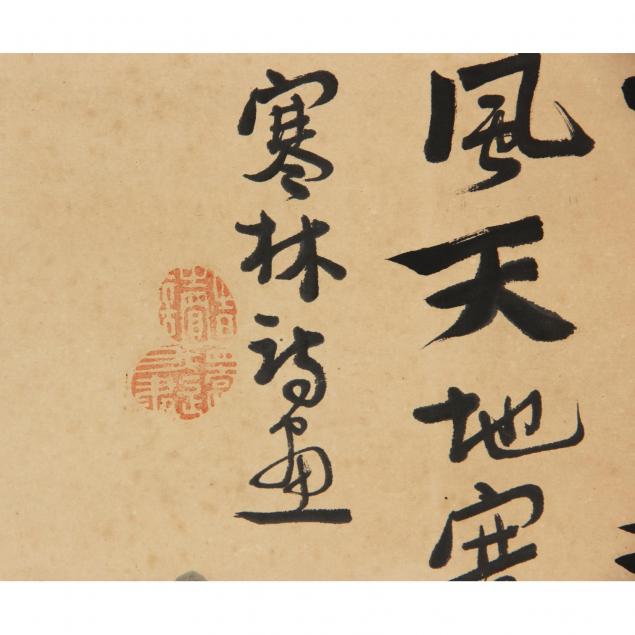 風天地寒
寒林詩画